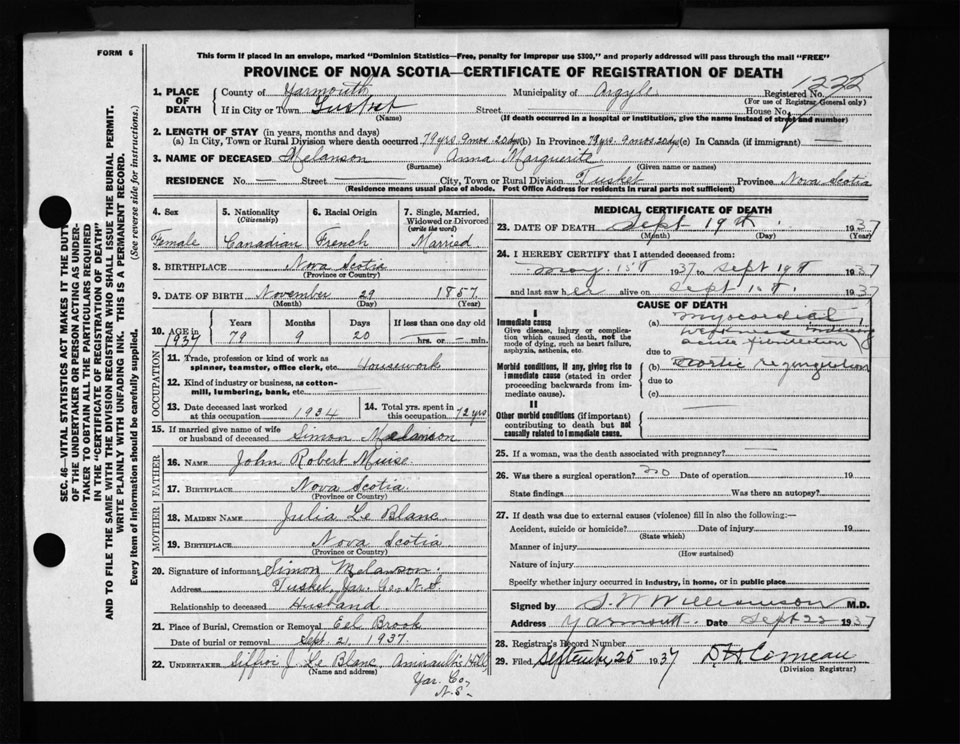 FORM 6
This form if placed in an envelope, marked "Dominion Statistics—Free, penalty for improper use $300," and properly addressed will pass through the mail "FREE"
PROVINCE OF NOVA SCOTIA—CERTIFICATE OF REGISTRATION OF DEATH
Registered No. 1222
(For use of Registrar General only)
1. PLACE OF DEATH
County of Yarmouth Municipality of Argyle
If in City or Town Tusket Street House No.
(Name) (If death occurred in a hospital or institution, give the name instead of street and number)
2. LENGTH OF STAY (in years, months and days)
(a) In City, Town or Rural Division where death occurred 79 yrs. 9 mos 20 dys (b) In Province 79 yrs. 9 mos 20 dys (c) In Canada (if immigrant) —
3. NAME OF DECEASED Melanson Anna Marguerite
(Surname) (Given name or names)
RESIDENCE No. — Street — City, Town or Rural Division Tusket Province Nova Scotia
(Residence means usual place of abode. Post Office Address for residents in rural parts not sufficient)
4. Sex
Female
5. Nationality
(Citizenship)
Canadian
6. Racial Origin
French
7. Single, Married, Widowed or Divorced
(write the word)
Married
8. BIRTHPLACE Nova Scotia
(Province or Country)
9. DATE OF BIRTH November 29 1857
(Month) (Day) (Year)
10. AGE in 1937
Years Months Days If less than one day old
79 9 20 hrs. or min.
OCCUPATION
11. Trade, profession or kind of work as spinner, teamster, office clerk, etc. Housework
12. Kind of industry or business, as cotton-mill, lumbering, bank, etc.
13. Date deceased last worked at this occupation 1934
14. Total yrs. spent in this occupation 72 yrs
15. If married give name of wife or husband of deceased Simon Melanson
FATHER
16. NAME John Robert Muise
17. BIRTHPLACE Nova Scotia
(Province or Country)
MOTHER
18. MAIDEN NAME Julia Le Blanc
19. BIRTHPLACE Nova Scotia
(Province or Country)
20. Signature of informant Simon Melanson
Address Tusket, Yar. Co, N.S.
Relationship to deceased Husband
21. Place of Burial, Cremation or Removal Eel Brook
Date of burial or removal Sept. 21, 1937.
22. UNDERTAKER Siffroi J. Le Blanc, Amirault's Hill
(Name and address)
Yar. Co,
N.S.
MEDICAL CERTIFICATE OF DEATH
23. DATE OF DEATH Sept 19th 1937
(Month) (Day) (Year)
24. I HEREBY CERTIFY that I attended deceased from:
May 15th 1937 to Sept 19th 1937
and last saw her alive on Sept 1937
CAUSE OF DEATH
I
Immediate cause
Give disease, injury or complication which caused death, not the mode of dying, such as heart failure, asphyxia, asthenia, etc.
(a) Myocardial
weakness
acute fibrillation
due to
Morbid conditions, if any, giving rise to immediate cause (stated in order proceeding backwards from immediate cause).
(b) Aortic regurgitation
due to
(c)
II
Other morbid conditions (if important) contributing to death but not causally related to immediate cause.
25. If a woman, was the death associated with pregnancy? —
26. Was there a surgical operation? no Date of operation 19
State findings Was there an autopsy?
27. If death was due to external causes (violence) fill in also the following:—
Accident, suicide or homicide? Date of injury 19
(State which)
Manner of injury
(How sustained)
Nature of injury
Specify whether injury occurred in industry, in home, or in public place
Signed by S. W Williamson M.D.
Address Yarmouth Date Sept 22 1937
28. Registrar's Record Number
29. Filed September 25 1937 D H Comeau
(Division Registrar)
SEC. 46—VITAL STATISTICS ACT MAKES IT THE DUTY
OF THE UNDERTAKER OR PERSON ACTING AS UNDER-
TAKER TO OBTAIN ALL THE PARTICULARS REQUIRED
IN THE "CERTIFICATE OF REGISTRATION OF DEATH"
AND TO FILE THE SAME WITH THE DIVISION REGISTRAR WHO SHALL ISSUE THE BURIAL PERMIT.
WRITE PLAINLY WITH UNFADING INK. THIS IS A PERMANENT RECORD.
Every item of information should be carefully supplied. (See reverse side for instructions.)